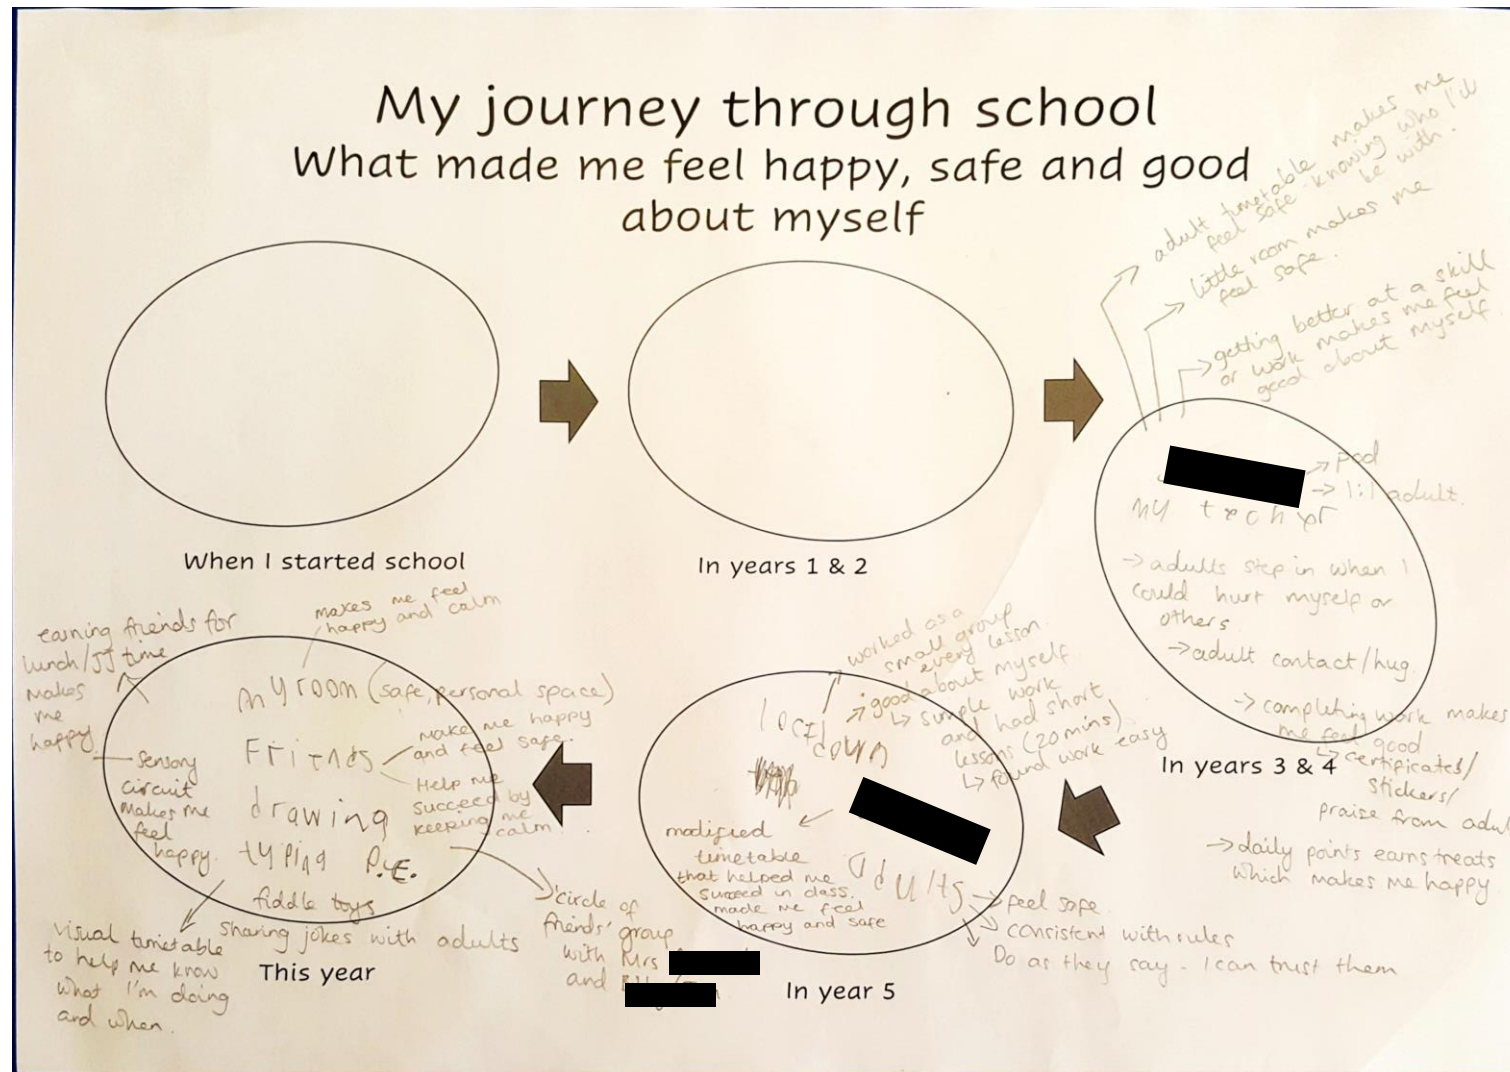 My journey through school
What made me feel happy, safe and good
about myself
When I started school
In years 1 & 2
adult timetable makes me
feel safe - knowing who I'll
be with.
little room makes me
feel safe.
getting better at a skill
or work makes me feel
good about myself.
→ Pod
→ 1:1 adult.
my techer
→ adults step in when I
could hurt myself or
others
→ adult contact/hug.
→ completing work makes
me feel good
↳ certificates/
stickers/
praise from adul
→ daily points earns treats
which makes me happy
In years 3 & 4
lockdown
worked as a
small group
every lesson.
→ good about myself
↳ simple work
and had short
lessons (20 mins)
↳ found work easy
modified
timetable
that helped me
succeed in class.
made me feel
happy and safe
adults
→ feel safe
consistent with rules
Do as they say - I can trust them
In year 5
earning friends for
lunch/JJ time
makes
me
happy
makes me feel
happy and calm
my room (safe, personal space)
Friends
make me happy
and feel safe.
Help me
succeed by
keeping me
calm.
sensory
circuit
makes me
feel
happy.
drawing
typing P.E.
fiddle toys
sharing jokes with adults
'circle of
friends' group
with Mrs
and
visual timetable
to help me know
what I'm doing
and when.
This year